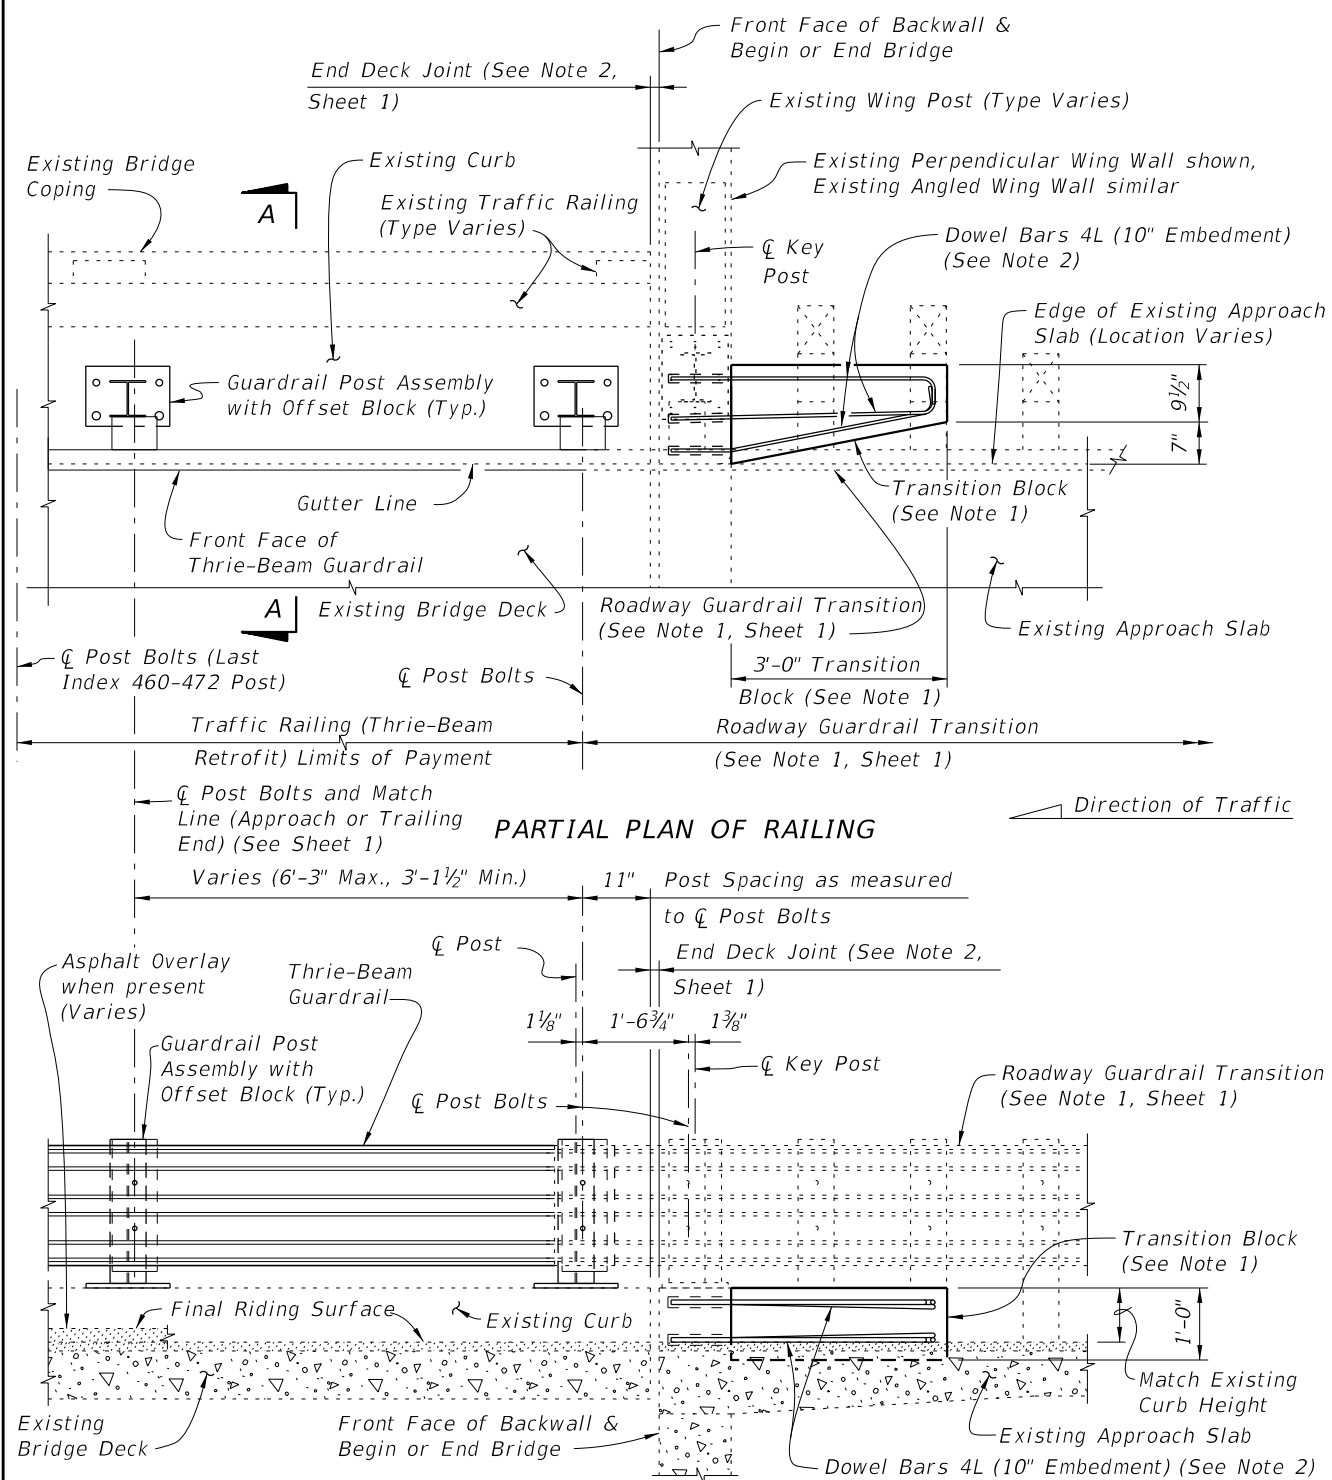 Front Face of Backwall &
Begin or End Bridge
End Deck Joint (See Note 2,
Sheet 1)
Existing Wing Post (Type Varies)
Existing Bridge
Coping
Existing Curb
A
Existing Traffic Railing
(Type Varies)
Existing Perpendicular Wing Wall shown,
Existing Angled Wing Wall similar
℄ Key
Post
Dowel Bars 4L (10" Embedment)
(See Note 2)
Edge of Existing Approach
Slab (Location Varies)
Guardrail Post Assembly
with Offset Block (Typ.)
9½"
7"
Gutter Line
Transition Block
(See Note 1)
Front Face of
Thrie-Beam Guardrail
A
Existing Bridge Deck
Roadway Guardrail Transition
(See Note 1, Sheet 1)
Existing Approach Slab
℄ Post Bolts (Last
Index 460-472 Post)
℄ Post Bolts
3'-0" Transition
Block (See Note 1)
Traffic Railing (Thrie-Beam
Retrofit) Limits of Payment
Roadway Guardrail Transition
(See Note 1, Sheet 1)
℄ Post Bolts and Match
Line (Approach or Trailing
End) (See Sheet 1)
PARTIAL PLAN OF RAILING
Direction of Traffic
Varies (6'-3" Max., 3'-1½" Min.)
11"
Post Spacing as measured
to ℄ Post Bolts
℄ Post
End Deck Joint (See Note 2,
Sheet 1)
Asphalt Overlay
when present
(Varies)
Thrie-Beam
Guardrail
1⅛"
1'-6¾"
1⅜"
Guardrail Post
Assembly with
Offset Block (Typ.)
℄ Key Post
℄ Post Bolts
Roadway Guardrail Transition
(See Note 1, Sheet 1)
Transition Block
(See Note 1)
Final Riding Surface
Existing Curb
1'-0"
Match Existing
Curb Height
Existing
Bridge Deck
Front Face of Backwall &
Begin or End Bridge
Existing Approach Slab
Dowel Bars 4L (10" Embedment) (See Note 2)